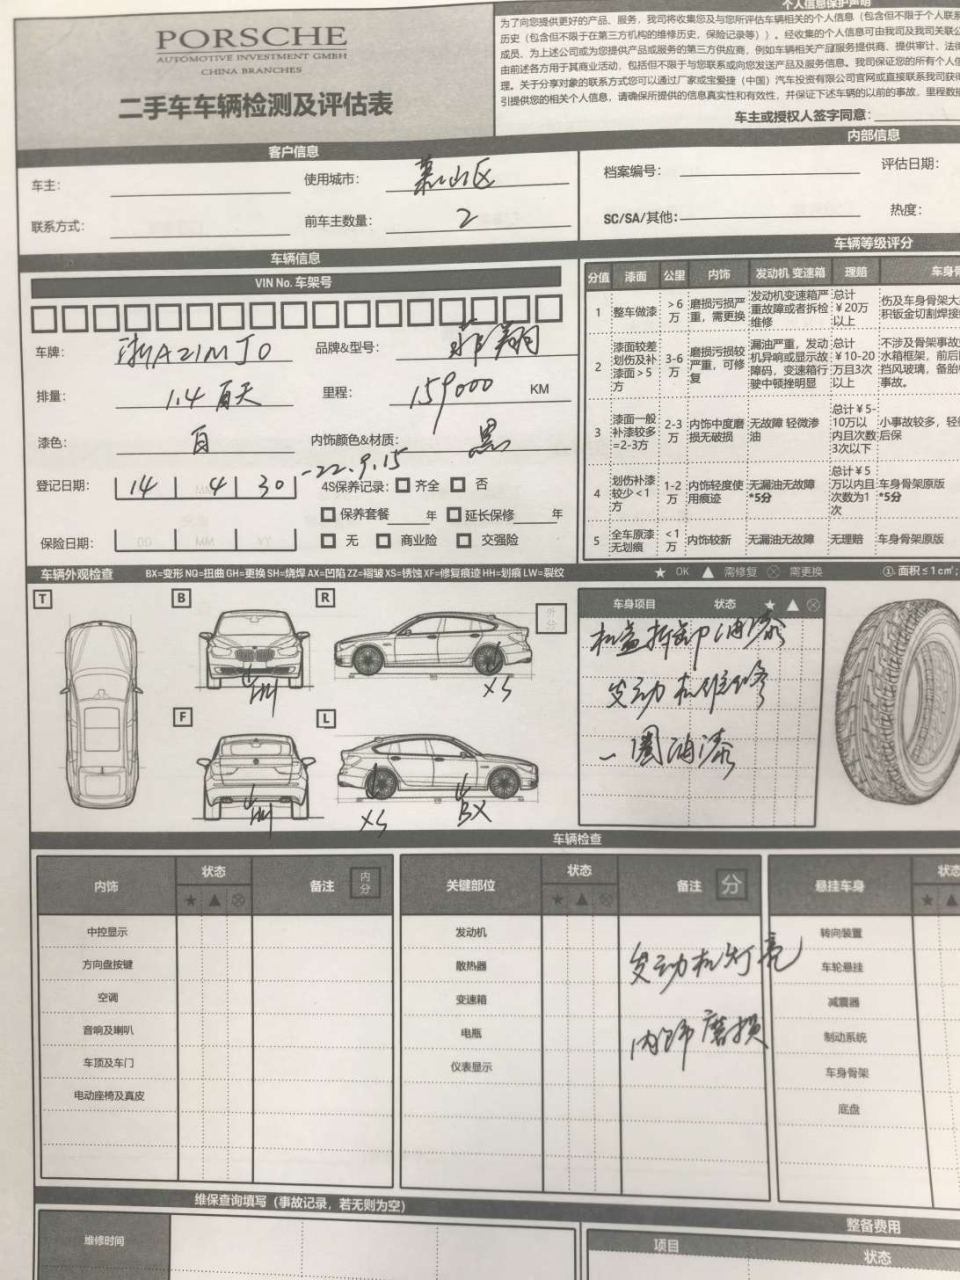 PORSCHE
AUTOMOTIVE INVESTMENT GMBH
CHINA BRANCHES
二手车车辆检测及评估表
个人信息保护声明
为了向您提供更好的产品、服务，我司将收集您及与您所评估车辆相关的个人信息（包含但不限于个人联系
历史（包含但不限于在第三方机构的维修历史，保险记录等））。经收集的个人信息可由我司及我司关联公
成员、为上述公司或为您提供产品或服务的第三方供应商，例如车辆相关产品服务提供商、提供审计、法律
由前述各方用于其商业活动，包括但不限于与您联系或向您发送产品及服务信息。我司保证您的所有个人信
理。关于分享对象的联系方式您可以通过厂家或宝爱捷（中国）汽车投资有限公司官网或直接联系我司获得
引提供您的相关个人信息，请确保所提供的信息真实性和有效性，并保证下述车辆的以前的事故，里程数据
车主或授权人签字同意：
客户信息
内部信息
车主：
使用城市： 萧山区
档案编号：
评估日期：
联系方式：
前车主数量： 2
SC/SA/其他：
热度：
车辆信息
VIN No. 车架号
车牌： 浙A21MJ0
品牌&型号：
排量： 1.4
里程： 159000 KM
漆色： 白
内饰颜色&材质： 黑
登记日期： 14 4 30
-22.9.15
4S保养记录： 齐全 否
保养套餐 年 延长保修 年
保险日期：
无 商业险 交强险
车辆等级评分
分值 漆面 公里 内饰 发动机 变速箱 理赔 车身骨
1 整车做漆 >6万 磨损污损严重，需更换 发动机变速箱严重故障或者拆检维修 总计￥20万以上 伤及车身骨架大 积钣金切割焊接
2 漆面较差划伤及补漆面>5方 3-6万 磨损污损较严重，可修复 漏油严重，发动机异响或显示故障码，变速箱行驶中顿挫明显 总计￥10-20万且3次以上 不涉及骨架事故 水箱框架，前后 挡风玻璃，备胎 事故。
3 漆面一般补漆较多=2-3方 2-3万 内饰中度磨损无破损 无故障 轻微渗油 总计￥5-10万以内且次数3次以下 小事故较多，轻 后保
4 划伤补漆较少<1方 1-2万 内饰轻度使用痕迹 无漏油无故障 *5分 总计￥5万以内且次数为1次 车身骨架原版 *5分
5 全车原漆无划痕 <1万 内饰较新 无漏油无故障 无理赔 车身骨架原版
车辆外观检查 BX=变形 NQ=扭曲 GH=更换 SH=烧焊 AX=凹陷 ZZ=褶皱 XS=锈蚀 XF=修复痕迹 HH=划痕 LW=裂纹
★ OK ▲ 需修复 ⊗ 需更换 ①. 面积≤1cm²;
T
B
R
外分
XS
F
L
XS
BX
车身项目 状态 ★ ▲ ⊗
机盖拆卸油漆
发动机维修
一圈油漆
车辆检查
内饰 状态 ★ ▲ ⊗ 备注 内分
中控显示
方向盘按键
空调
音响及喇叭
车顶及车门
电动座椅及真皮
关键部位 状态 ★ ▲ ⊗ 备注 分
发动机
散热器
变速箱
电瓶
仪表显示
发动机灯亮
内饰磨损
悬挂车身 状态 ★ ▲
转向装置
车轮悬挂
减震器
制动系统
车身骨架
底盘
维保查询填写（事故记录，若无则为空）
维修时间
整备费用
项目 状态